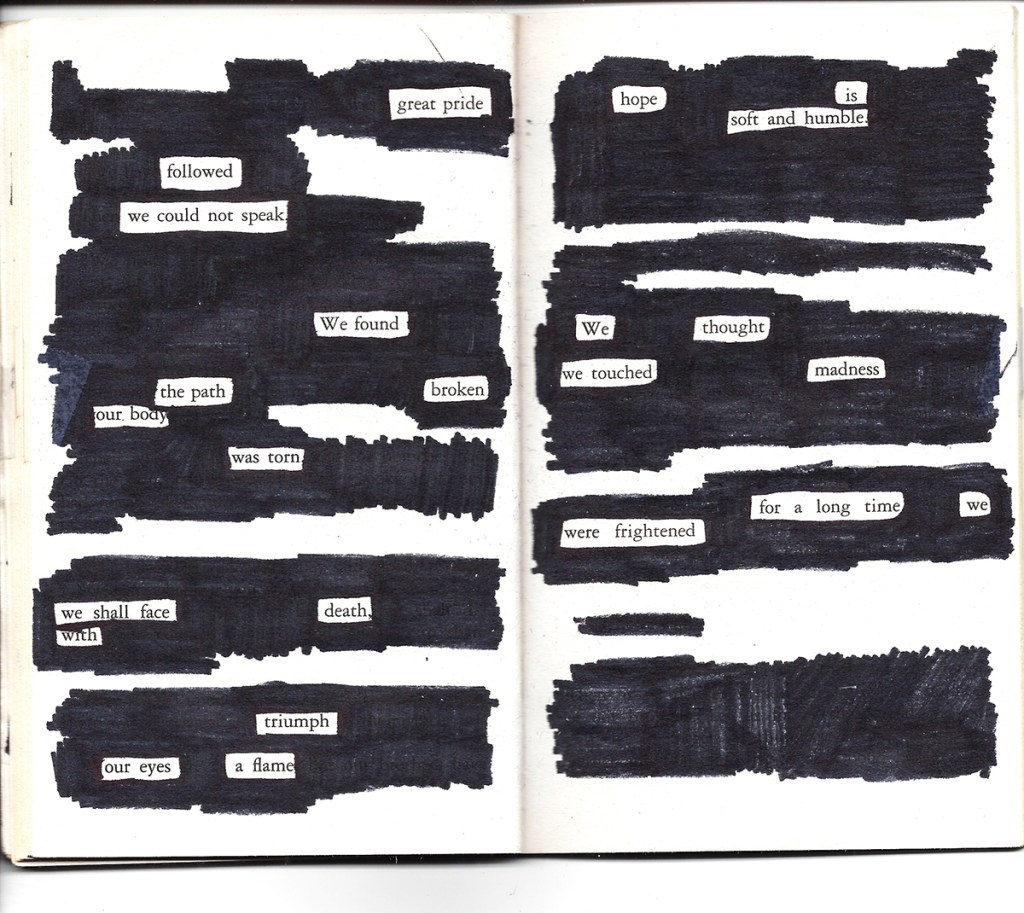 great pride
followed
we could not speak.
We found
the path broken
our body
was torn.
we shall face death,
with
triumph
our eyes a flame
hope is
soft and humble.
We thought
we touched madness
for a long time we
were frightened